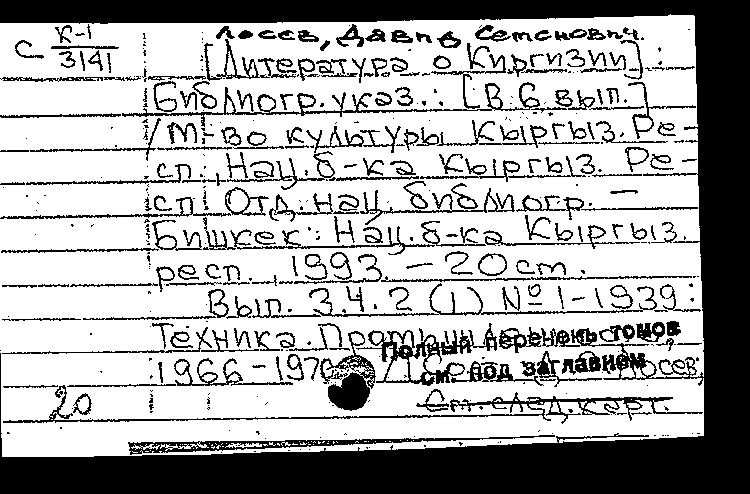 Лосев, Давид Семенович.
С К-1
3141
[Литература о Киргизии] :
Библиогр. указ. : [В 6 вып.]
/ М-во культуры Кыргыз. Ре-
сп., Нац. б-ка Кыргыз. Ре-
сп. Отд. нац. библиогр. —
Бишкек : Нац. б-ка Кыргыз.
респ., 1993. — 20 см.
Вып. 3.4.2 (1) № 1-1939 :
Техника.
Полный перечень томов
1966-1970 Лосев;
см. под заглавием
20
См. след. карт.